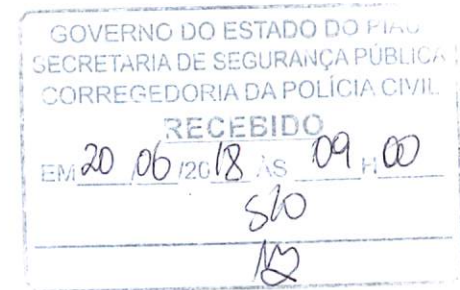 GOVERNO DO ESTADO DO PIAU
SECRETARIA DE SEGURANÇA PÚBLICA
CORREGEDORIA DA POLÍCIA CIVIL
RECEBIDO
EM 20 / 06 /2018 ÀS 09 H 00